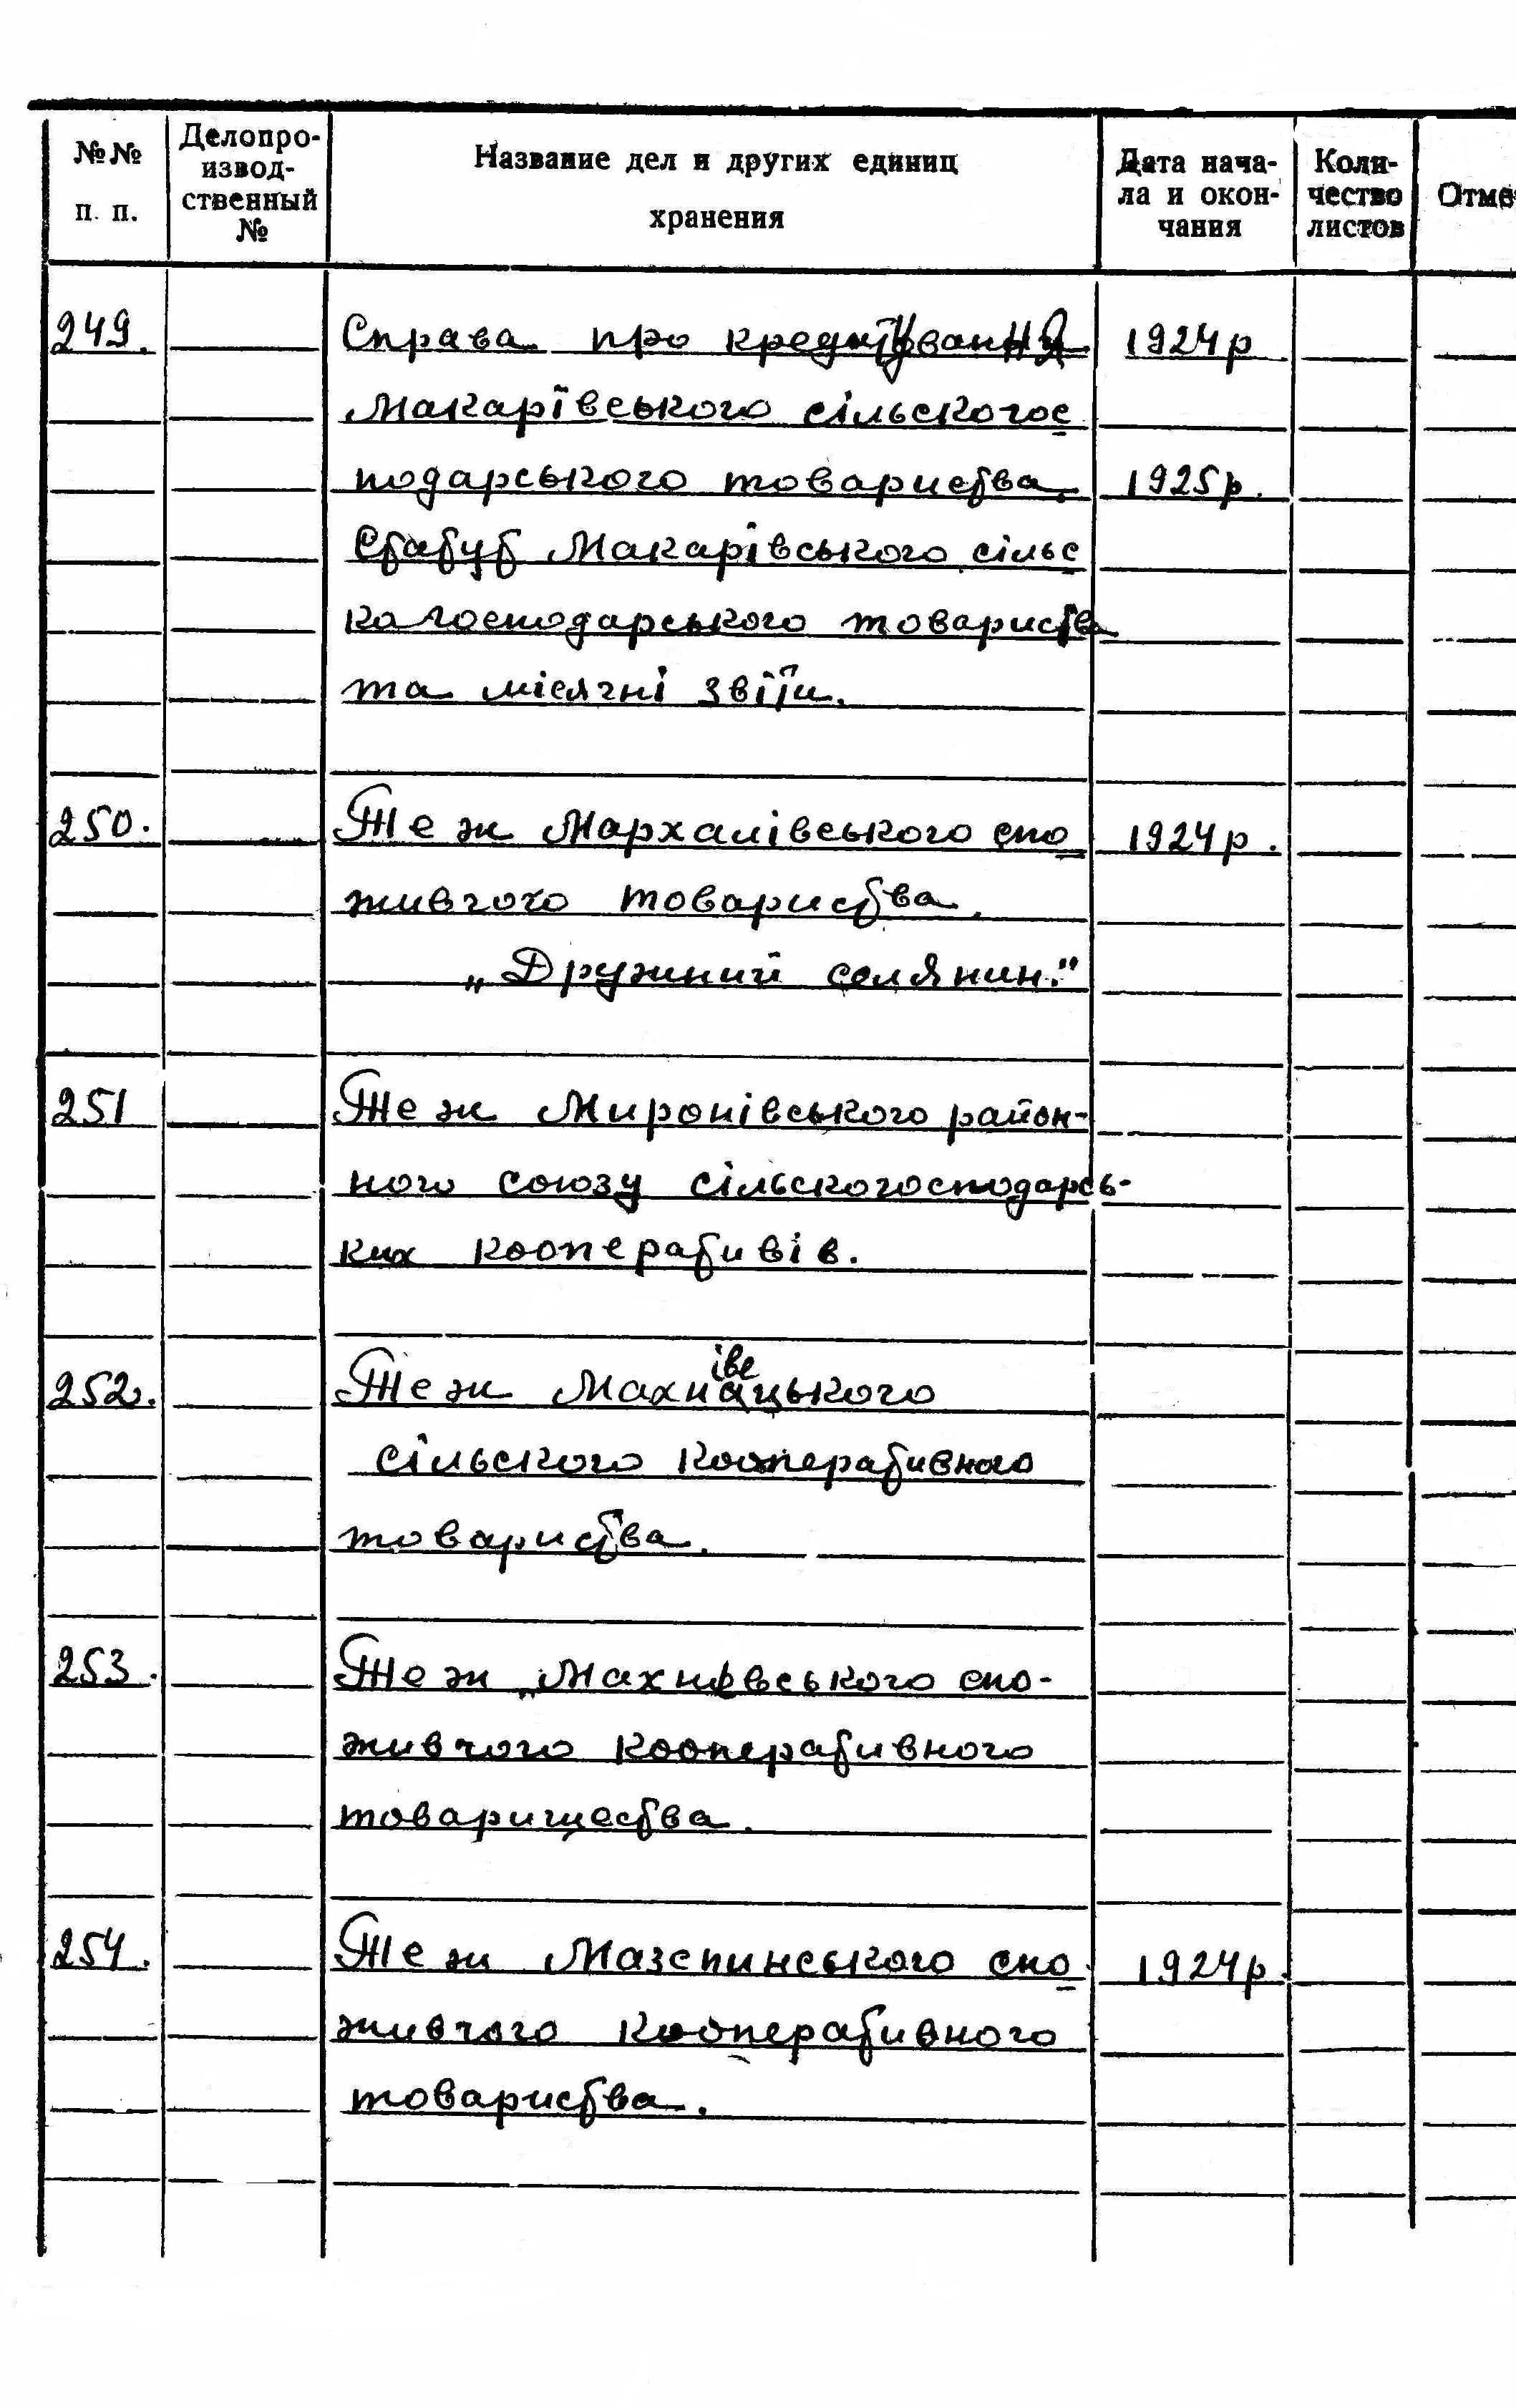 №№ п. п.
Делопро-
извод-
ственный
№
Название дел и других единиц
хранения
Дата нача-
ла и окон-
чания
Коли-
чество
листов
Отме
249. Справа про кредитування 1924р
Макарївського сільскогос
подарського товариства. 1925р.
Статут Макарівського сільс
когосподарського товариства
та місячні звіїи.
250. Теж Мархалівського спо 1924р.
живчого товариства.
„Дружний селянин."
251 Теж Миронівського район-
ного союзу сільскогосподарсь-
ких кооперативів.
252. Теж
сільского кооперативного
товариства.
253. Теж Махнівського спо-
живчого кооперативного
товарищества.
254. Теж Мазепинського спо 1924р.
живчого кооперативного
товариства.